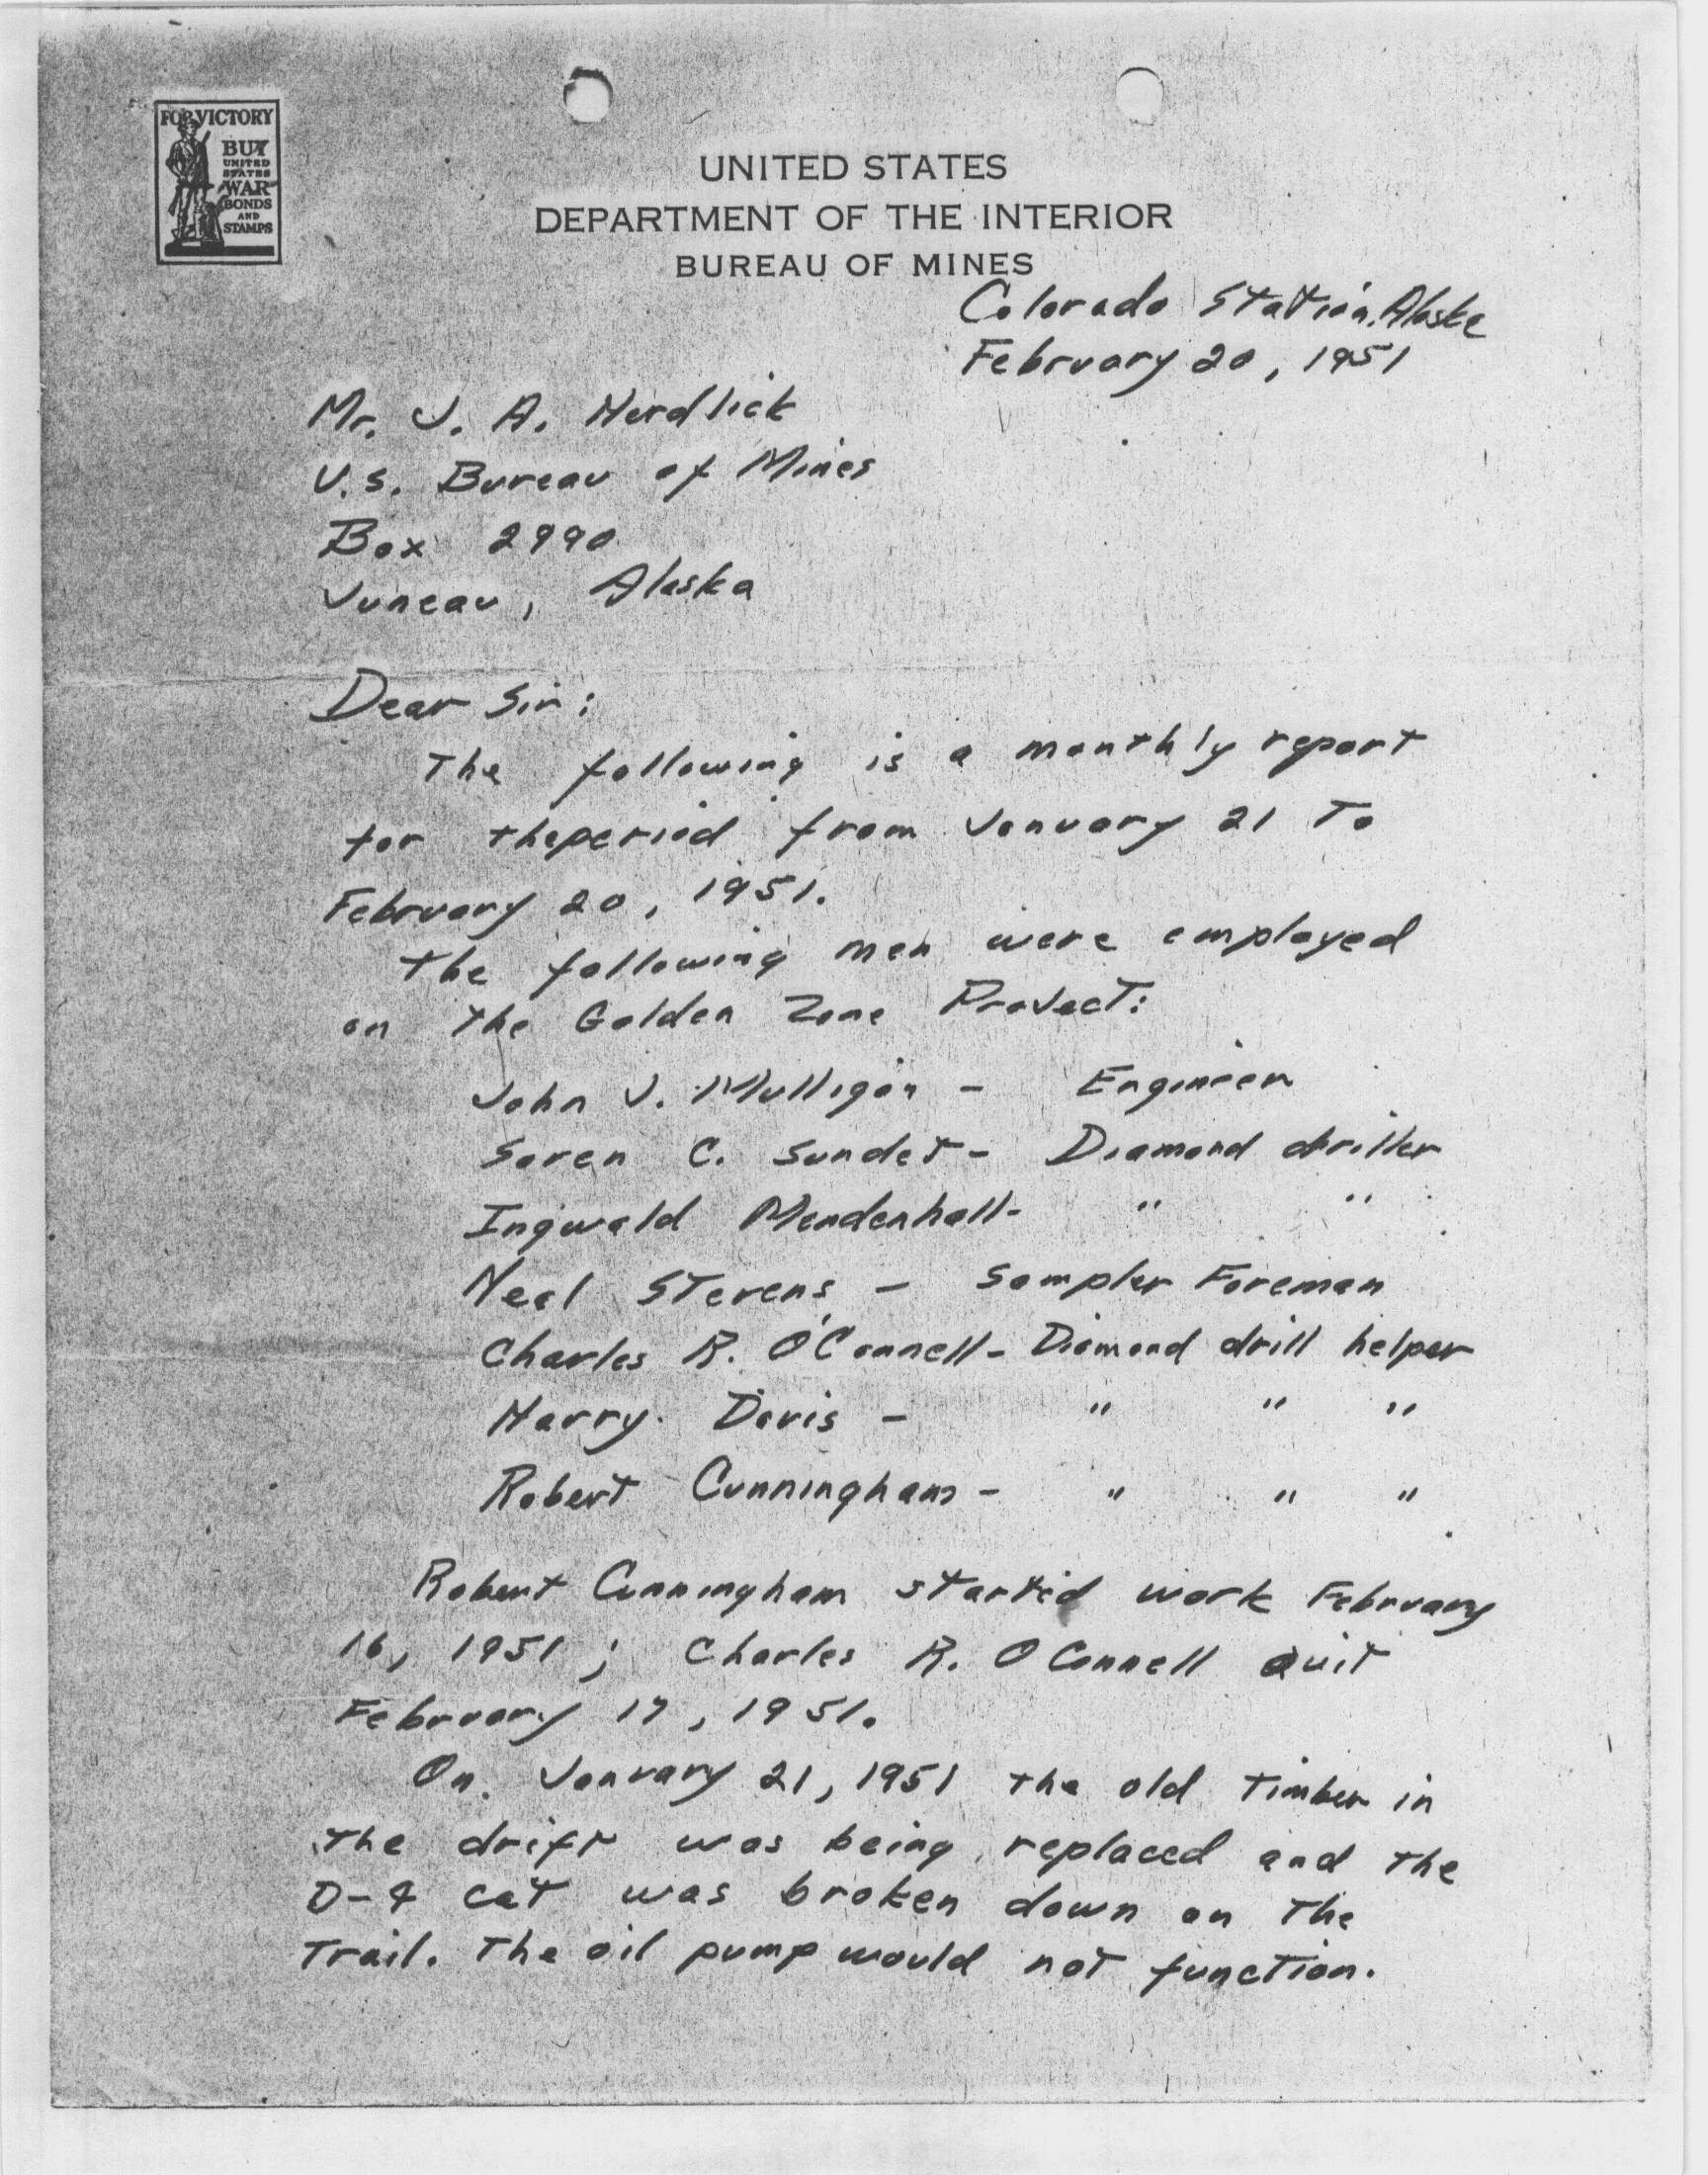 FOR VICTORY
BUY
UNITED
STATES
WAR
BONDS
AND
STAMPS
UNITED STATES
DEPARTMENT OF THE INTERIOR
BUREAU OF MINES
Colorado Station, Alaska
February 20, 1951
Mr. J. A. Herdlick
U.S. Bureau of Mines
Box 2990
Juneau, Alaska
Dear Sir:
The following is a monthly report
for the period from January 21 To
February 20, 1951.
The following men were employed
on The Golden Zone Project:
John J. Mulligan - Engineer
Soren C. Sundet - Diamond driller
Ingwald Mendenhall - " "
Neal Stevens - Sampler Foreman
Charles R. O'Connell - Diamond drill helper
Harry Davis - " " "
Robert Cunningham - " " "
Robert Cunningham started work February
16, 1951; Charles R. O Connell quit
February 17, 1951.
On January 21, 1951 the old Timber in
The drift was being replaced and The
D-4 cat was broken down on The
Trail. The oil pump would not function.